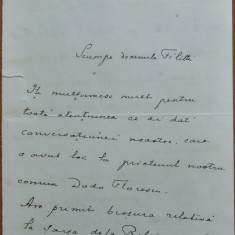 Scumpe domnule Filitti
Îți mulțumesc mult pentru
toată atențiunea ce ai dat
conversațiunei noastre, care
a avut loc la prietenul nostru
comun Dodo Florescu.
Am primit broșura relativă
la